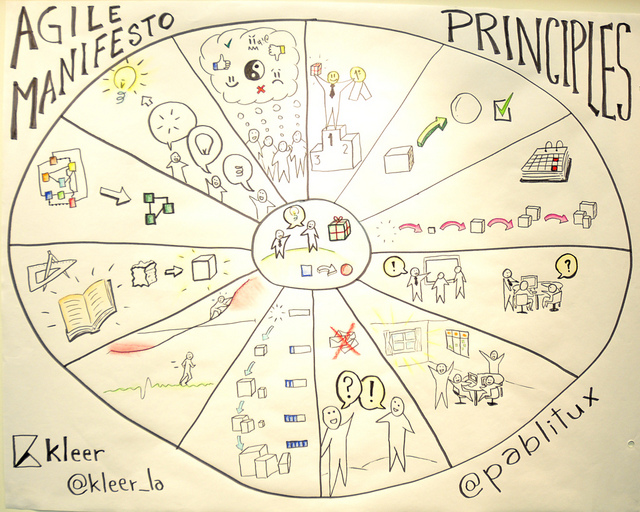 AGILE
MANIFESTO
PRINCIPLES
1º
1
2
3
!
?
?
!
kleer
@kleer_la
@pablitux